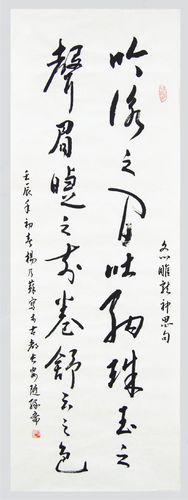 吟詠之间吐納珠玉之
聲眉睫之前卷舒云之色
文心雕龍神思句
壬辰年初春楊乃蘇寫于古都长安随緣斋